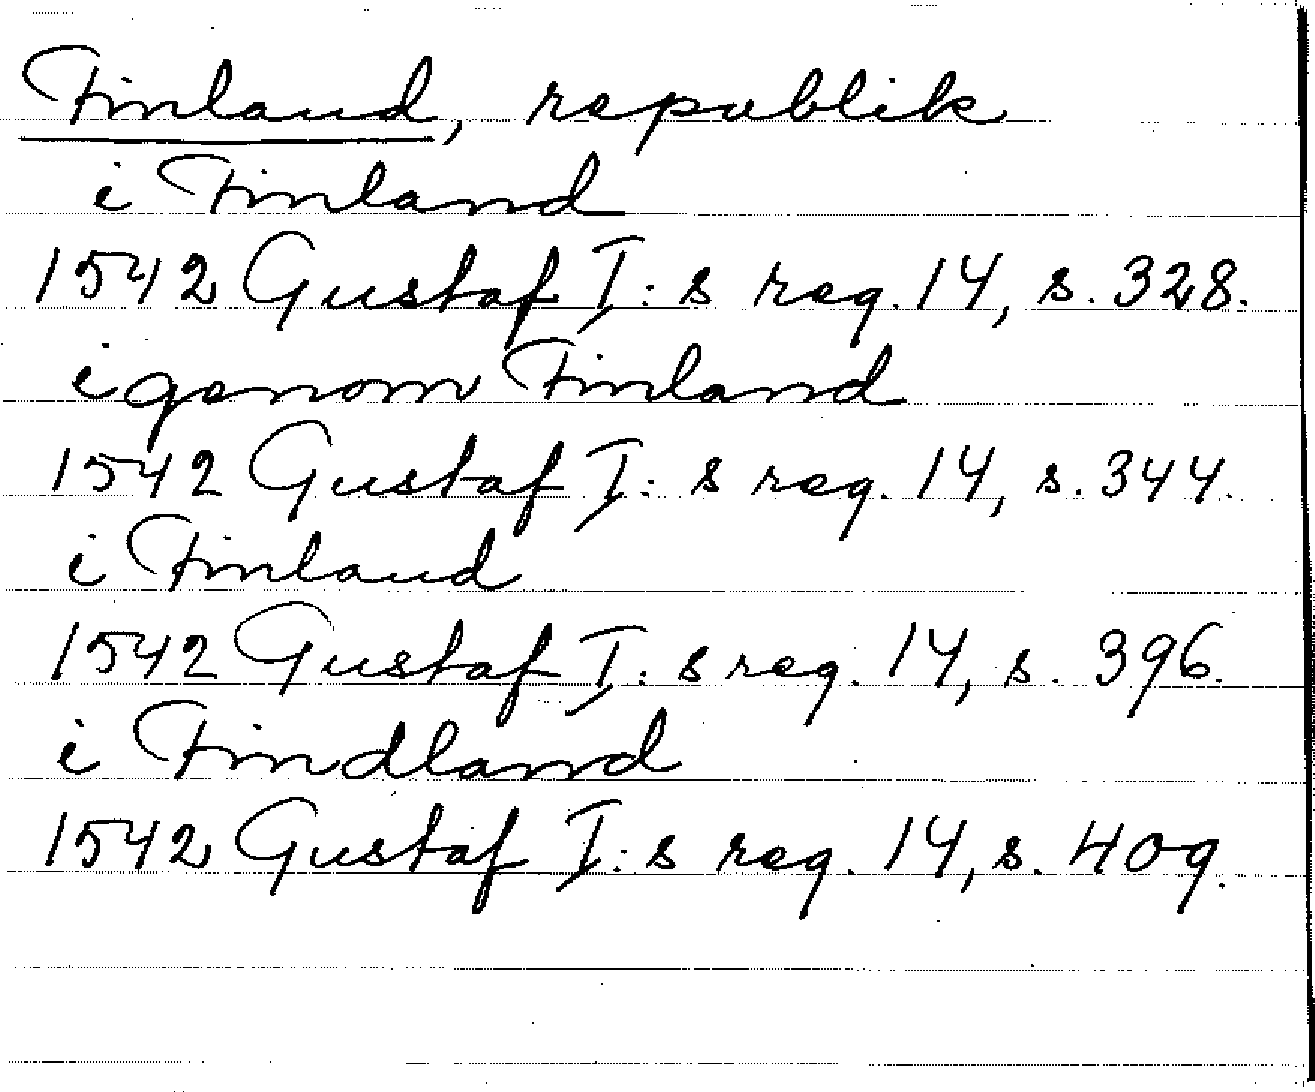 Finland, republik
i Finland
1542 Gustaf I: s reg. 14, s. 328.
igenom Finland
1542 Gustaf I: s reg. 14, s. 344.
i Finland
1542 Gustaf I: s reg. 14, s. 396.
i Findland
1542 Gustaf I: s reg. 14, s. 409.